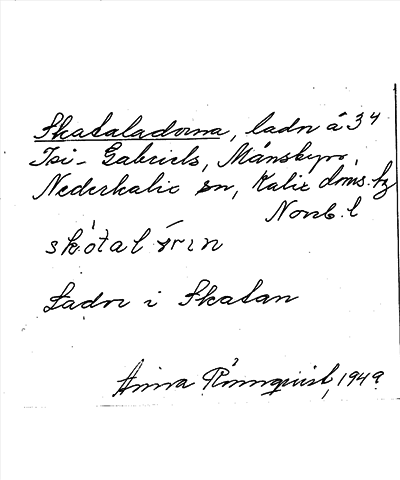 Skataladorna, ladr å 3⁴
Isi- Gabriels, Månsbyn,
Nederkalix sn, Kalix doms. hz
Norrb. l
skȯtal
Lador i Skatan
Anna Rönnquist, 1949